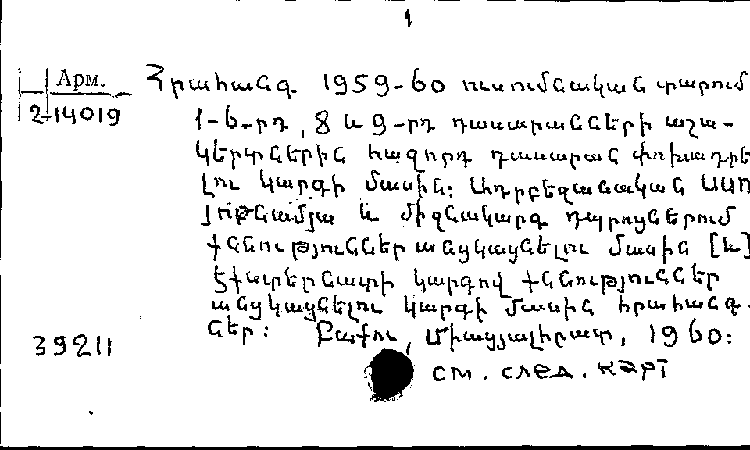 1
Арм.
2-14019
Հրահանգ 1959-60 ուսումնական տարում
1-6-րդ, 8 և 9-րդ դասարանների աշա-
կերտներին հաջորդ դասարան փոխադրե
լու կարգի մասին: Ադրբեջանական ՍՍՌ
յոթնամյա և միջնակարգ դպրոցներում
քննություններ անցկացնելու մասին [և]
էքստերնատի կարգով քննություններ
անցկացնելու կարգի մասին հրահանգ-
ներ: Բաքու, Միացյալհրատ, 1960:
39211
см. след. карт